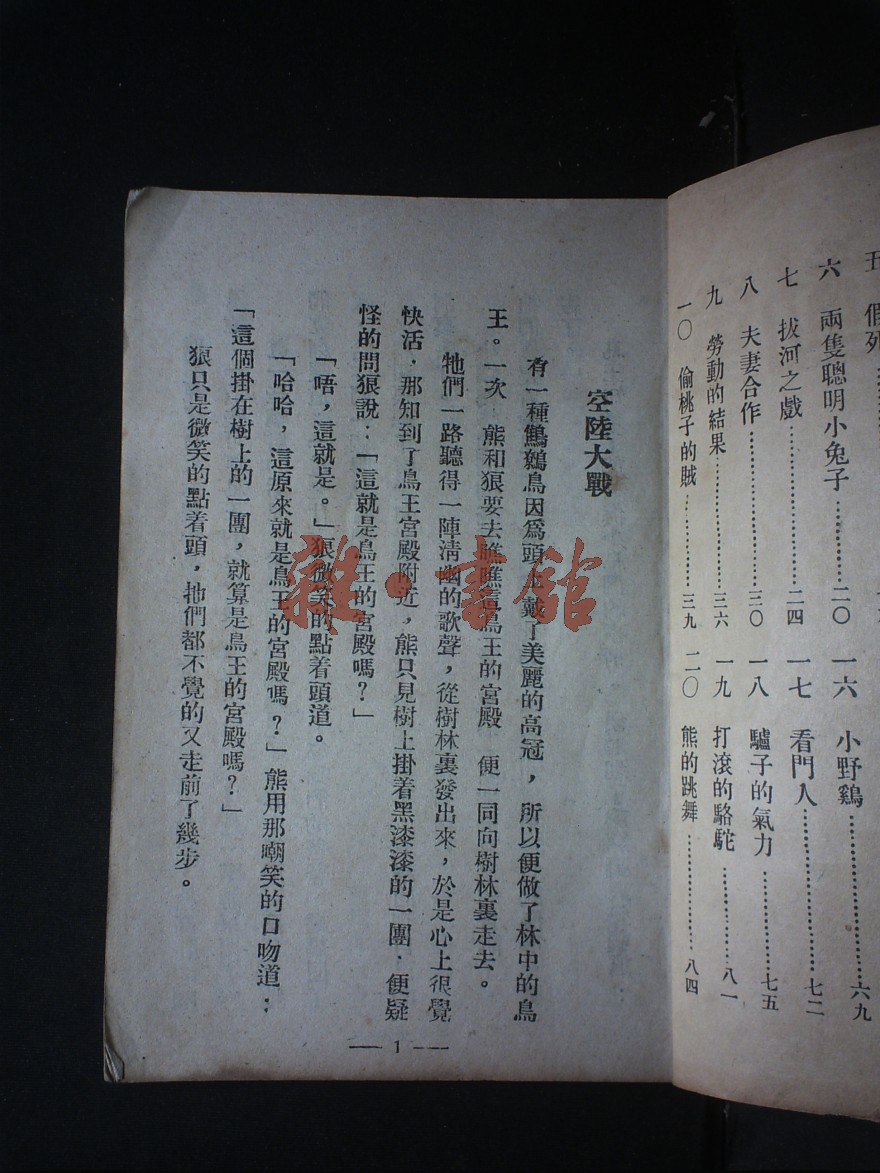 五 假死
六 兩隻聰明小兔子…………二〇
七 拔河之戲…………二四
八 夫妻合作…………三〇
九 勞動的結果…………三六
一〇 偷桃子的賊…………三九
一六 小野鷄…………六九
一七 看門人…………七二
一八 驢子的氣力…………七五
一九 打滾的駱駝…………八一
二〇 熊的跳舞…………八四
空陸大戰
有一種鷦鷯鳥因爲頭上戴了美麗的高冠，所以便做了林中的鳥
王。一次，熊和狼要去瞧瞧這鳥王的宮殿 便一同向樹林裏走去。
牠們一路聽得一陣淸幽的歌聲，從樹林裏發出來，於是心上很覺
快活，那知到了鳥王宮殿附近，熊只見樹上掛着黑漆漆的一團，便疑
怪的問狼說：「這就是鳥王的宮殿嗎？」
「唔，這就是。」狼微笑的點着頭道。
「哈哈，這原來就是鳥王的宮殿嗎？」熊用那嘲笑的口吻道：
「這個掛在樹上的一團，就算是鳥王的宮殿嗎？」
狼只是微笑的點着頭，牠們都不覺的又走前了幾步。
— 1 —
雜·書館